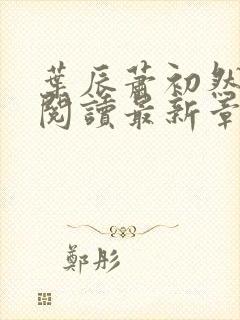 葉辰蕭初然
閱讀最新章
鄭彤